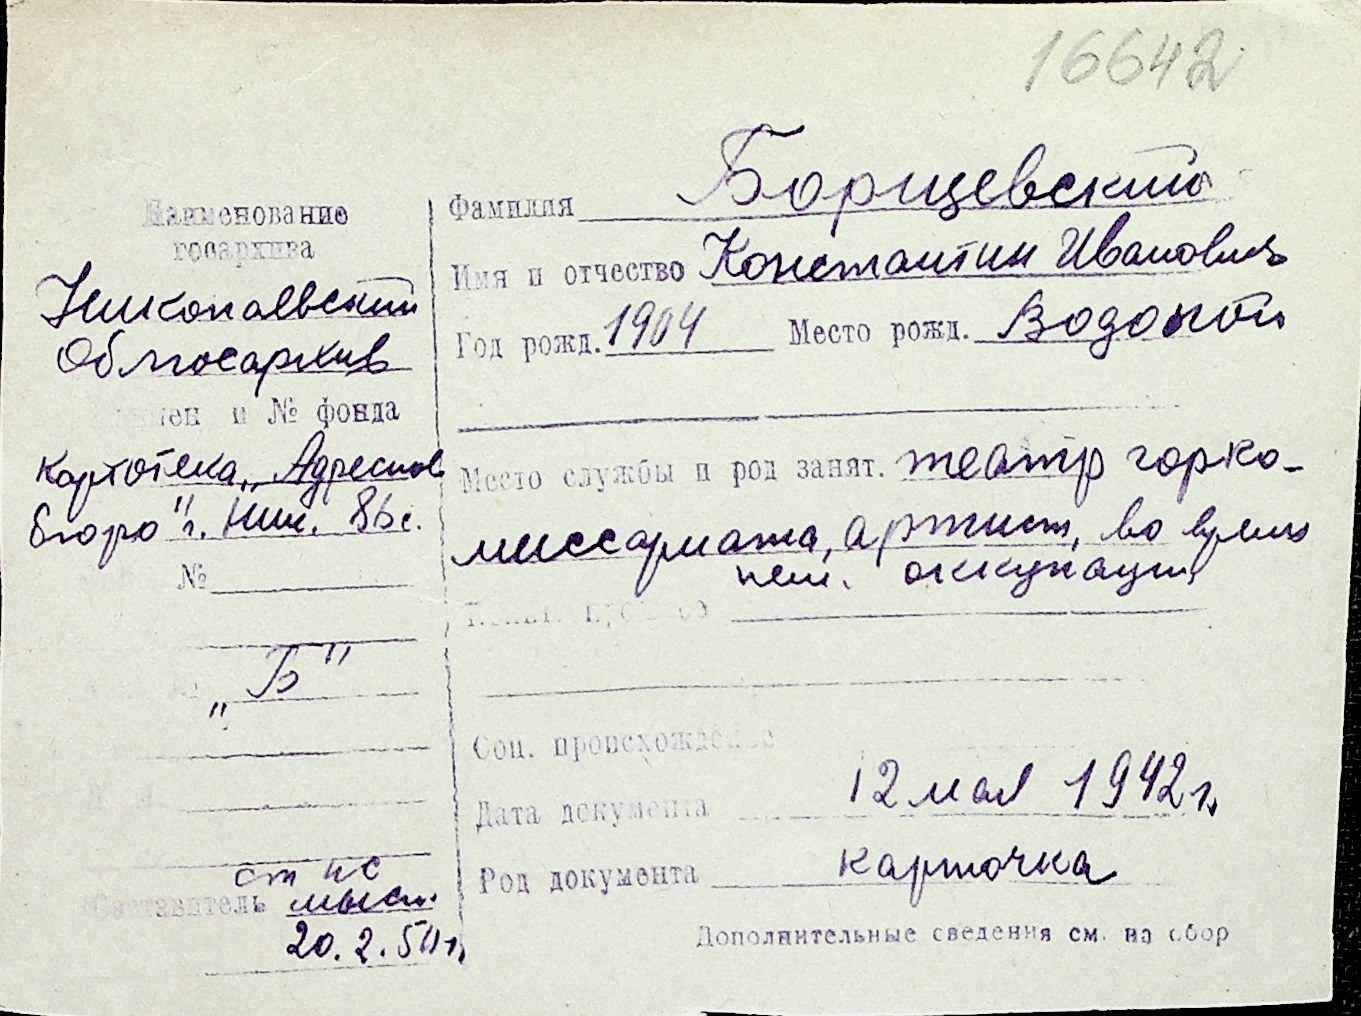 16642
Наименование
госархива
Николаевский
Облгосархив
и № фонда
Картотека „Адресное
бюро" г. Ник. 86с.
№
„Б"
ст нс
Составитель
20.2.50 г.
Фамилия Борщевский
Имя и отчество Константин Иванович
Год рожд. 1904 Место рожд. Водопой
Место службы и род занят. театр горко-
миссариата, артист, во время
нем. оккупации
Соц. происхождение
Дата документа 12 мая 1942 г.
Род документа карточка
Дополнительные сведения см. на обор